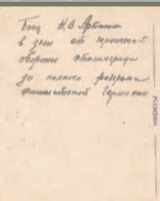 Боец Н.В.
в дни от героической
обороны Сталинграда
до полного разгрома
фашистской Германии